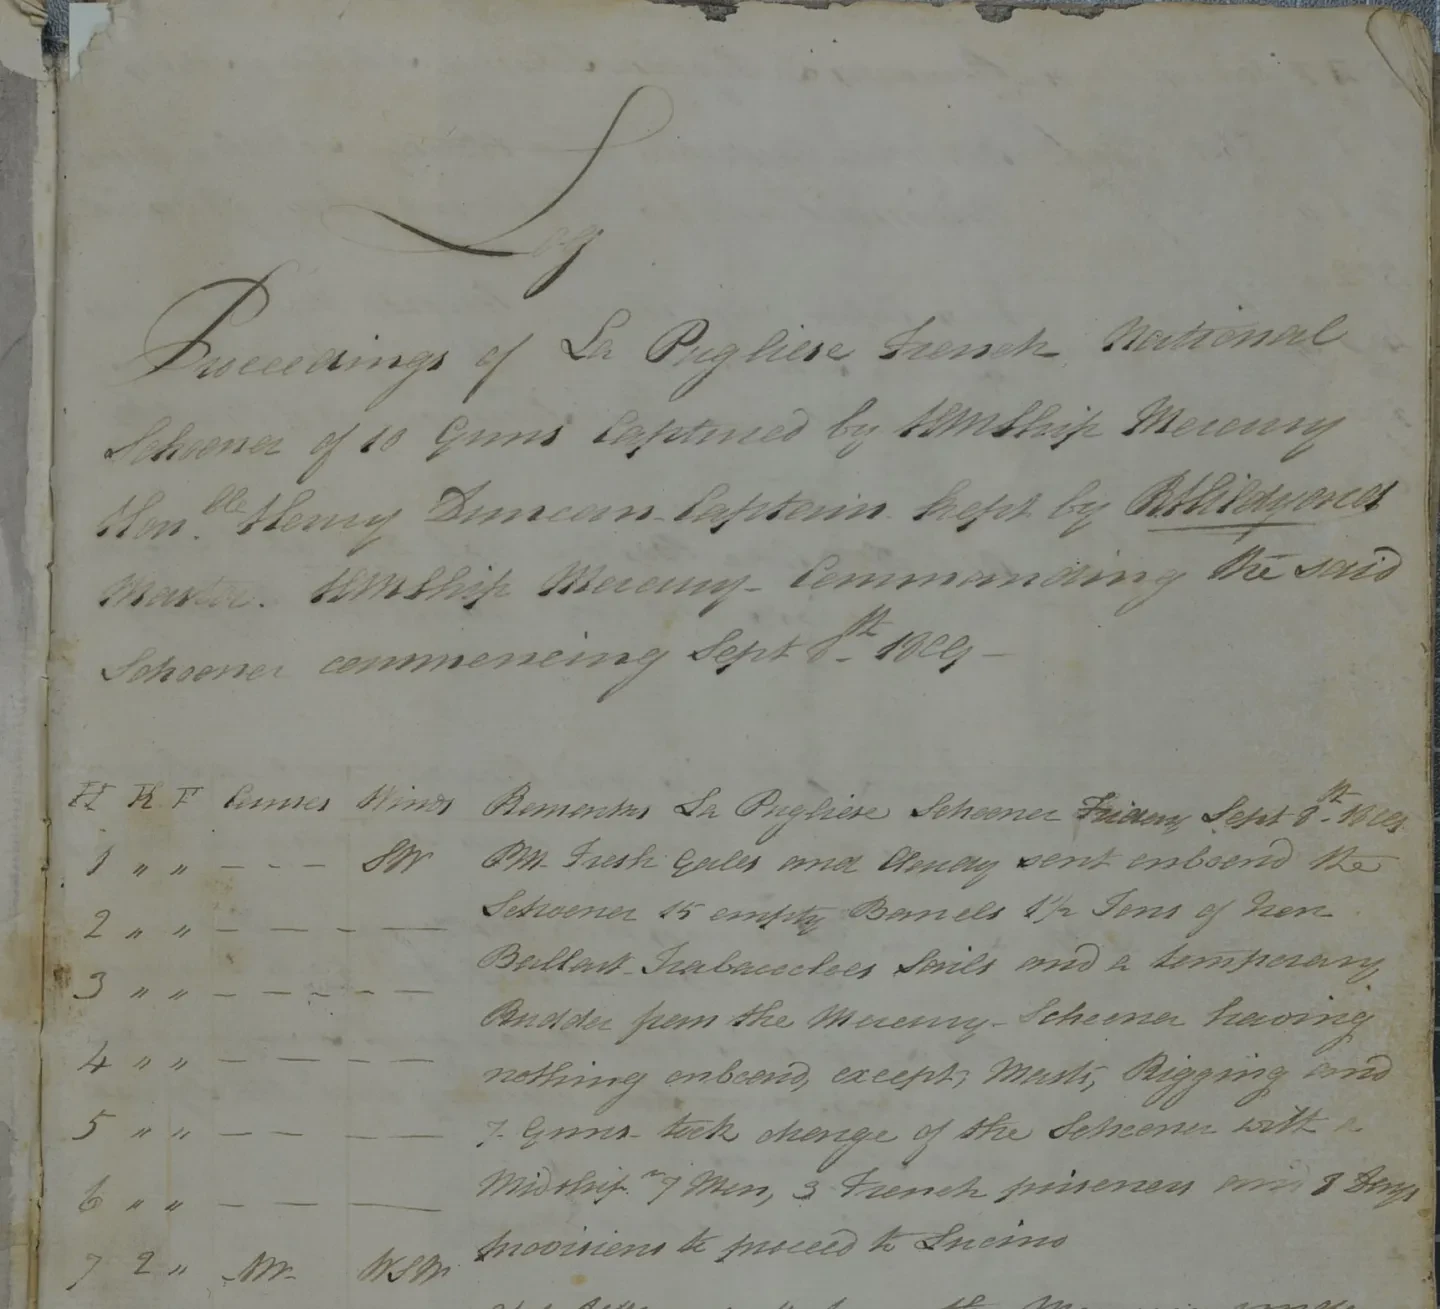 Log
Proceedings of La Pugliese French National
Schooner of 10 Guns Captured by HMShip Mercury
Hon.ble Henry Duncan Captain kept by RHildyard
Master. HMShip Mercury - Commanding the said
Schooner commencing Sept 8th 1809 -
H K F Courses Winds Remarks La Pugliese Schooner Friday Sept 8th 1809
1 " " - - - SW PM Fresh Gales and Cloudy sent onboard the
Schooner 15 empty Barrels 1½ Tons of Iron
2 " " - - - - -
Ballast - Trabaccloes Sails and a temporary
3 " " - - - - - -
Rudder from the Mercury - Schooner having
4 " " - - - - -
nothing onboard, except, Masts, Rigging and
5 " " - - - - - 7 Guns - took charge of the Schooner with a
6 " " - - - - Midshipn 7 Men, 3 French prisoners and 8 Days
provisions to proceed to
7 2 " NW - WSW